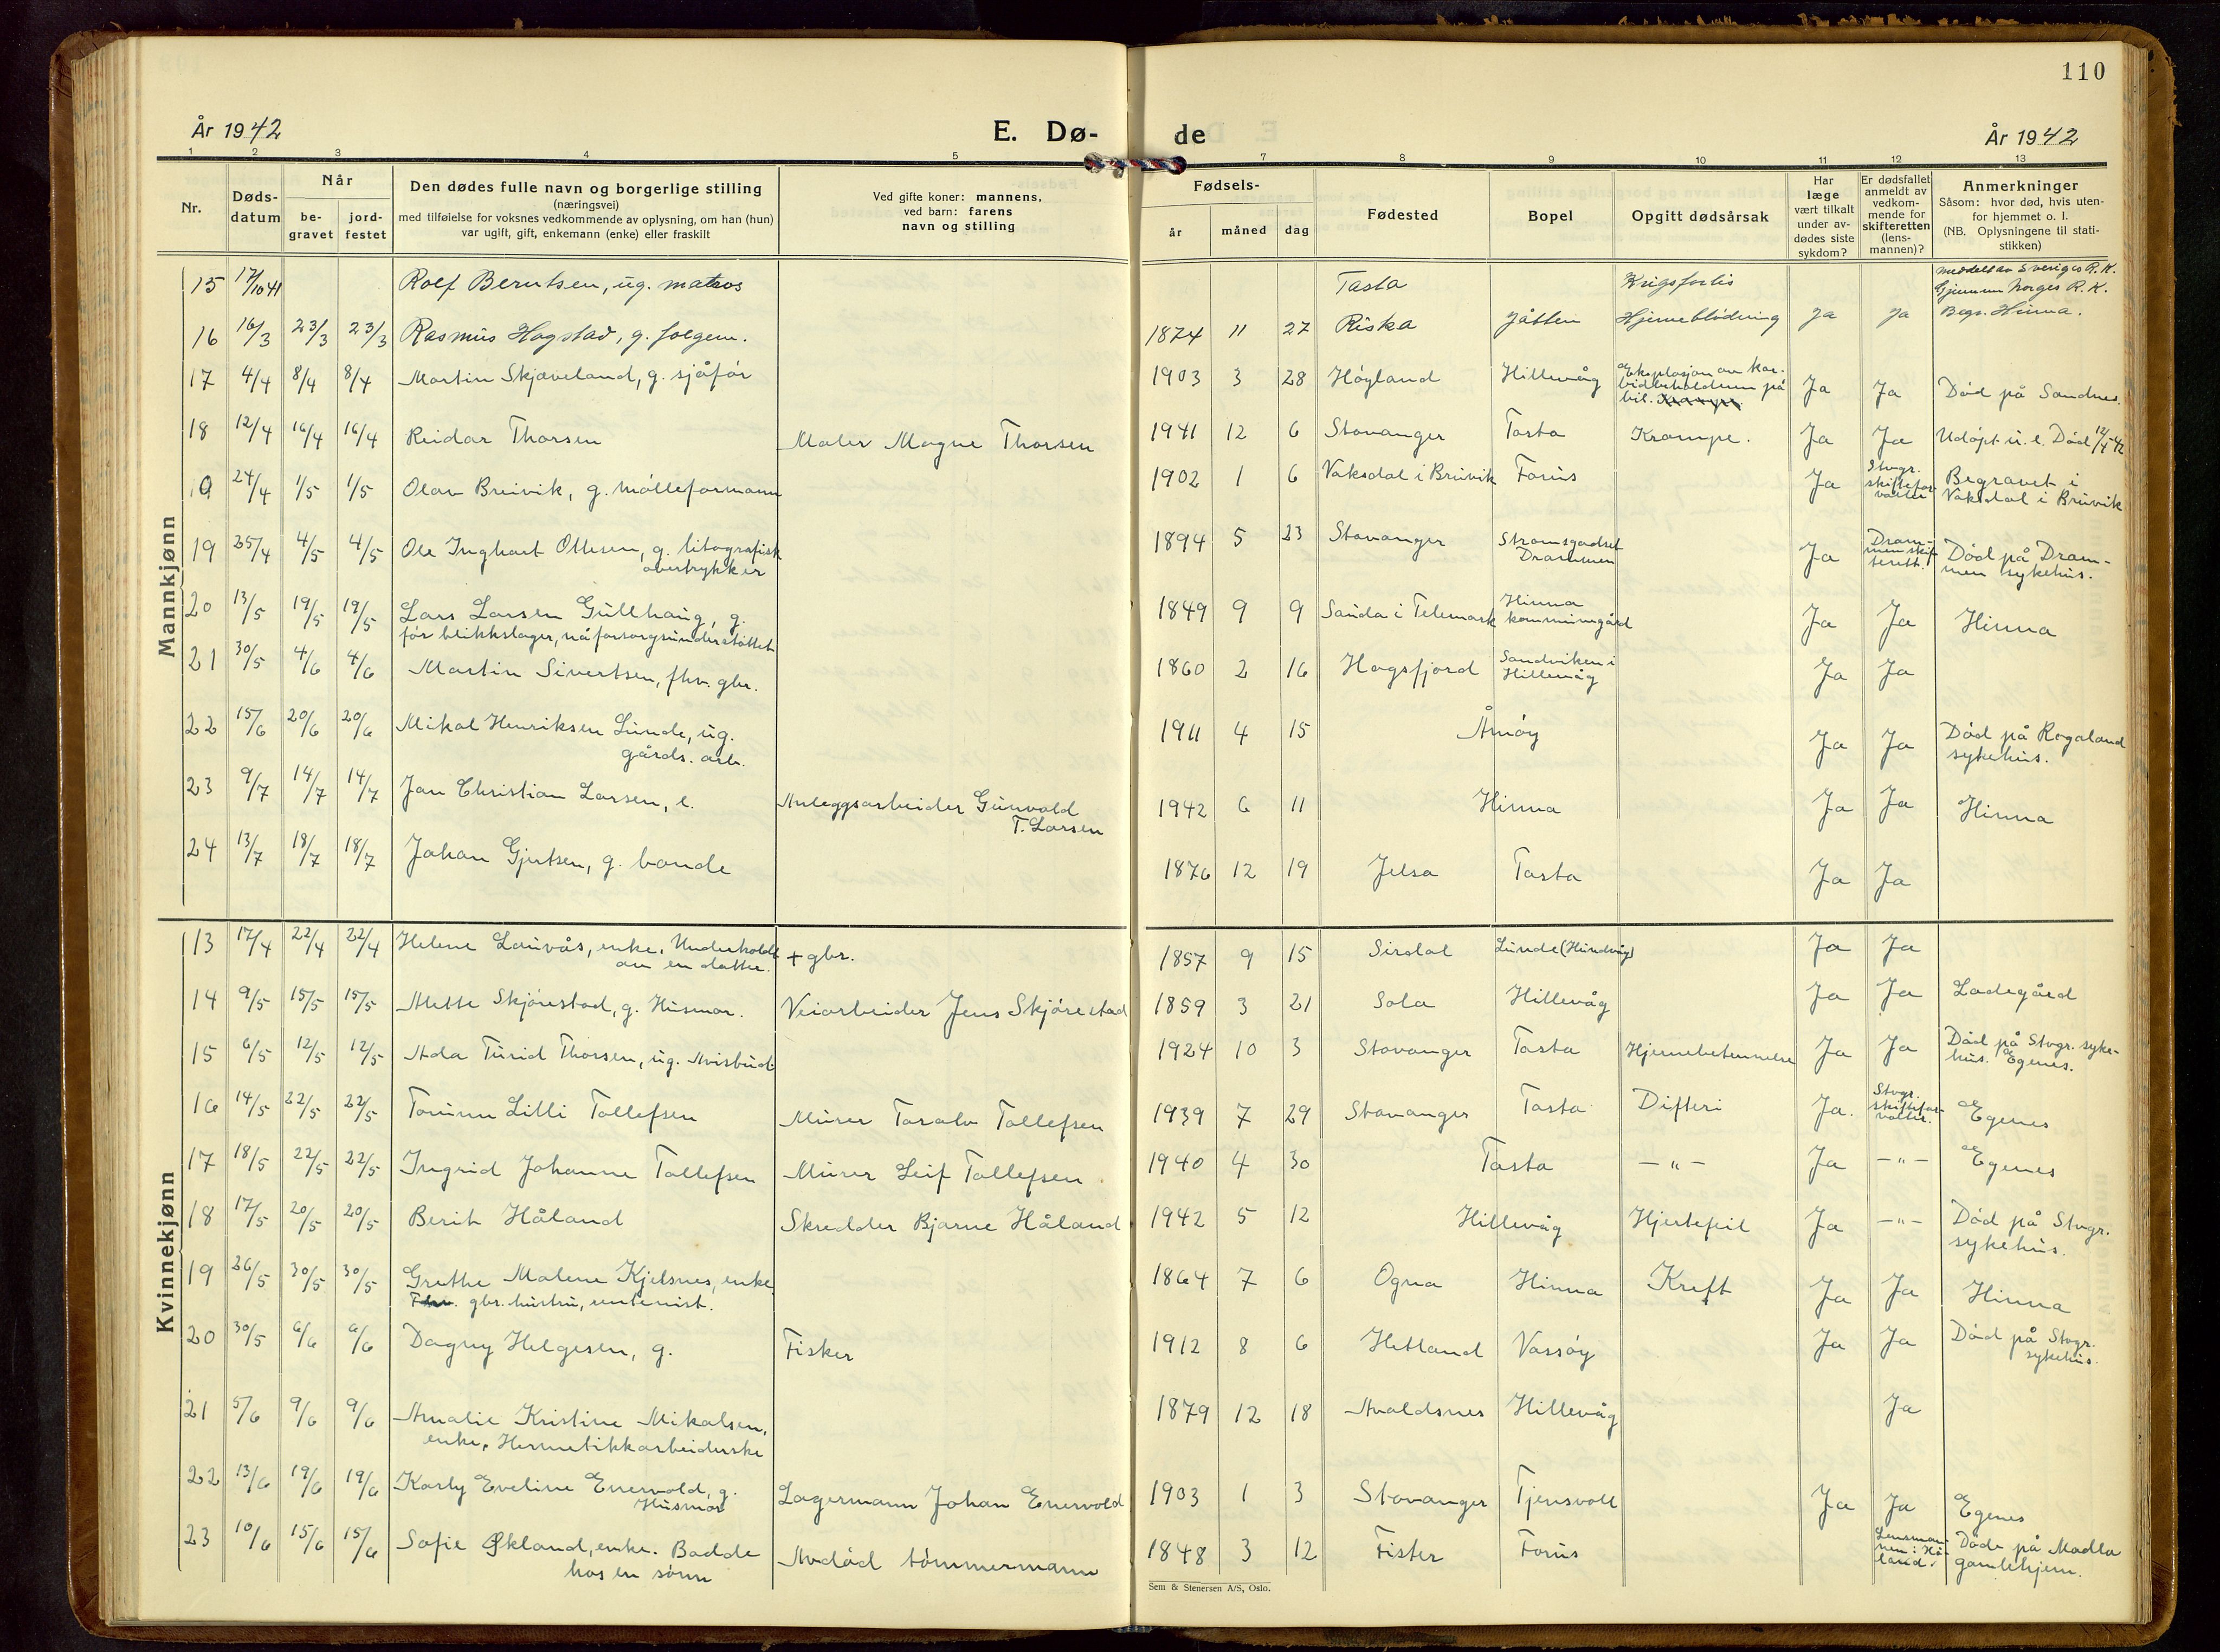 110
År 1942
E. Dø-
de
År 1942
1 2 3 4 5 7 8 9 10 11 12 13
Nr.
Døds-
datum
Når
be-
gravet
jord-
festet
Den dødes fulle navn og borgerlige stilling
(næringsvei)
med tilføielse for voksnes vedkommende av oplysning, om han (hun)
var ugift, gift, enkemann (enke) eller fraskilt
Ved gifte koner: mannens,
ved barn: farens
navn og stilling
Fødsels-
år måned dag
Fødested
Bopel
Opgitt dødsårsak
Har
læge
vært tilkalt
under av-
dødes siste
sykdom?
Er dødsfallet
anmeldt av
vedkom-
mende for
skifteretten
(lens-
mannen)?
Anmerkninger
Såsom: hvor død, hvis uten-
for hjemmet o. l.
(NB. Oplysningene til stati-
stikken)
Mannkjønn
15 17/10 41 Rolf Berntsen, ug. matros Tasta Krigsforlis meddelt av Sveriges R. K.
Gjennem Norges R. K.
16 16/3 23/3 23/3 Rasmus Hogstad, g. 1874 11 27 Riska Jåtten Hjerneblødning Ja Ja Begr. Hinna.
17 4/4 8/4 8/4 Martin Skjæveland, g. sjåfør 1903 3 28 Høyland Hillevåg Eksplosjon av kar-
bidbeholderen på
bil. Ja Ja Død på Sandnes.
18 12/4 16/4 16/4 Reidar Thorsen Maler Magne Thorsen 1941 12 6 Stavanger Tasta Krampe. Ja Ja Udøpt u. e. Død 12/4 42
19 24/4 1/5 1/5 Olav Breivik, g. mølleformann 1902 1 6 Vaksdal i Bruvik Forus Ja Stvgr.
skiftefor-
valter Begravet i
Vaksdal i Bruvik
19 25/4 4/5 4/5 Ole Inghart Ottesen, g. litografisk
overtrykker 1894 5 23 Stavanger Strømsgodset
Drammen Ja Dram-
men skif-
terett. Død på Dram-
men sykehus.
20 13/5 19/5 19/5 Lars Larsen Gullhaug, g.
før blikkslager, nå forsorgsunderstøttet 1849 9 9 Sauda i Telemark Hinna
kommunegård Ja Ja Hinna
21 30/5 4/6 4/6 Martin Sivertsen, fhv. gbr. 1860 2 16 Høgsfjord Sandviken i
Hillevåg Ja Ja
22 15/6 20/6 20/6 Mikal Henriksen Lunde, ug.
gårds. arb. 1911 4 15 Åmøy Ja Ja Død på Rogaland
sykehus.
23 9/7 14/7 14/7 Jan Christian Larsen, e. Anleggsarbeider Gunvald
T. Larsen 1942 6 11 Hinna Ja Ja Hinna
24 13/7 18/7 18/7 Johan Gjertsen, g. bonde 1876 12 19 Jelsa Tasta Ja Ja
Kvinnekjønn
13 17/4 22/4 22/4 Helene Lauvås, enke. Underholdt
av en datter. + gbr. 1857 9 15 Sirdal Lunde (Hundvåg) Ja Ja
14 9/5 15/5 15/5 Mette Skjørestad, g. Husmor. Veiarbeider Jens Skjørestad 1859 3 21 Sola Hillevåg Ja Ja Ladegård
15 6/5 12/5 12/5 Ada Turid Thorsen, ug. Avisbud 1924 10 3 Stavanger Tasta Hjernebetennelse Ja Ja Død på Stvgr. syke-
hus. Egenes.
16 14/5 22/5 22/5 Torunn Lilli Tollefsen Murer Taralv Tollefsen 1939 7 29 Stavanger Tasta Difteri Ja. Stvgr.
skiftefor-
valter. Egenes
17 18/5 22/5 22/5 Ingrid Johanne Tollefsen Murer Leif Tollefsen 1940 4 30 Tasta -"- Ja -"- Egenes
18 17/5 20/5 20/5 Berit Håland Skredder Bjarne Håland 1942 5 12 Hillevåg Hjertefeil Ja -"- Død på Stvgr.
sykehus.
19 26/5 30/5 30/5 Grethe Malene Kjelsnes, enke
Fhv. gbr. hustru, 1864 7 6 Ogna Hinna Kreft Ja Ja Hinna
20 30/5 6/6 6/6 Dagny Helgesen, g. Fisker 1912 8 6 Hetland Vassøy Ja Ja Død på Stvgr.
sykehus.
21 5/6 9/6 9/6 Amalie Kristine Mikalsen,
enke, Hermetikkarbeiderske 1879 12 18 Avaldsnes Hillevåg Ja
22 13/6 19/6 19/6 Karly Eveline Enervold, g.
Husmor Lagermann Johan Enervold 1903 1 3 Stavanger Tjensvoll Ja Ja Egenes
23 10/6 15/6 15/6 Sofie Økland, enke. Bodde
hos en sønn Avdød tømmermann 1848 3 12 Fister Forus Lensman-
nen i Hå-
land. Døde på Madla
gamlehjem.
Sem & Stenersen A/S, Oslo.